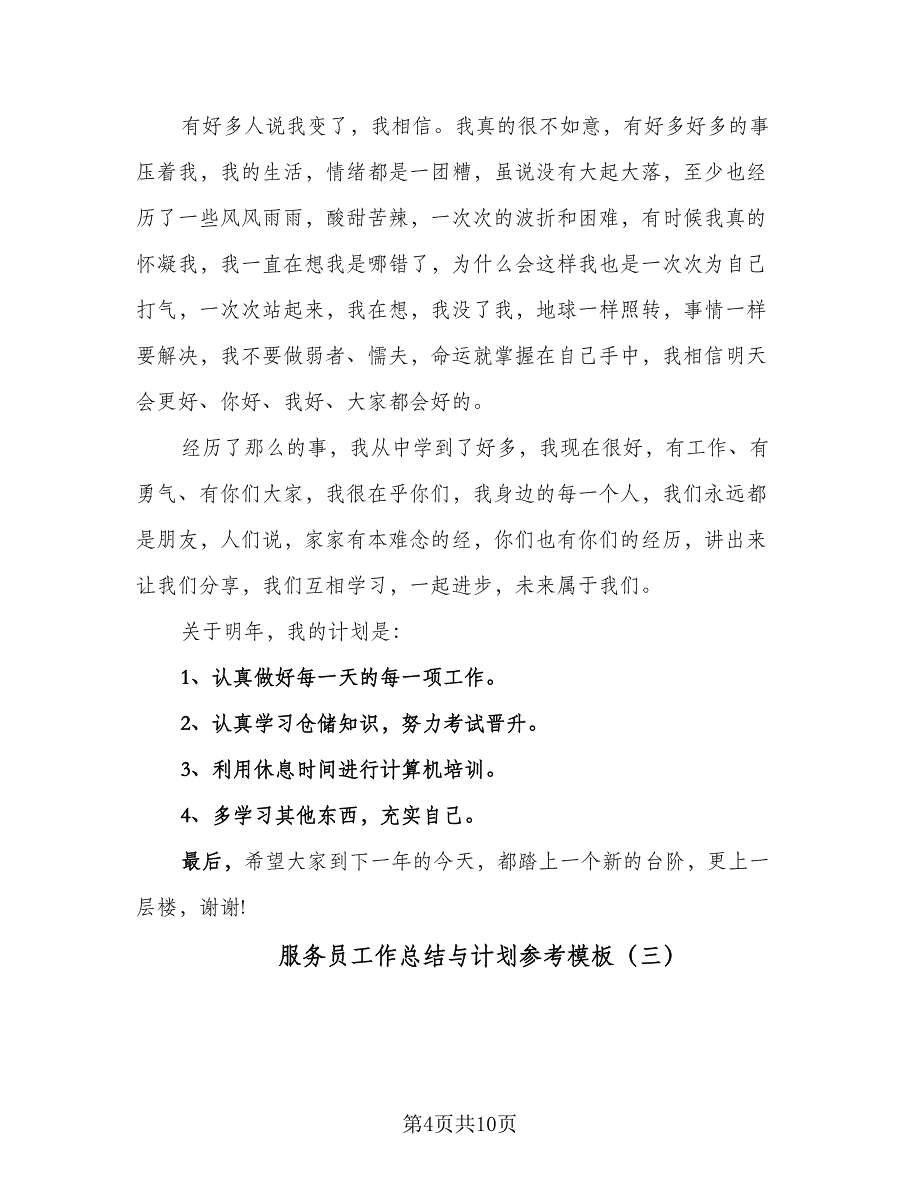 有好多人说我变了，我相信。我真的很不如意，有好多好多的事
压着我，我的生活，情绪都是一团糟，虽说没有大起大落，至少也经
历了一些风风雨雨，酸甜苦辣，一次次的波折和困难，有时候我真的
怀凝我，我一直在想我是哪错了，为什么会这样我也是一次次为自己
打气，一次次站起来，我在想，我没了我，地球一样照转，事情一样
要解决，我不要做弱者、懦夫，命运就掌握在自己手中，我相信明天
会更好、你好、我好、大家都会好的。
经历了那么的事，我从中学到了好多，我现在很好，有工作、有
勇气、有你们大家，我很在乎你们，我身边的每一个人，我们永远都
是朋友，人们说，家家有本难念的经，你们也有你们的经历，讲出来
让我们分享，我们互相学习，一起进步，未来属于我们。
关于明年，我的计划是：
1、认真做好每一天的每一项工作。
2、认真学习仓储知识，努力考试晋升。
3、利用休息时间进行计算机培训。
4、多学习其他东西，充实自己。
最后，希望大家到下一年的今天，都踏上一个新的台阶，更上一
层楼，谢谢!
服务员工作总结与计划参考模板（三）
第4页共10页